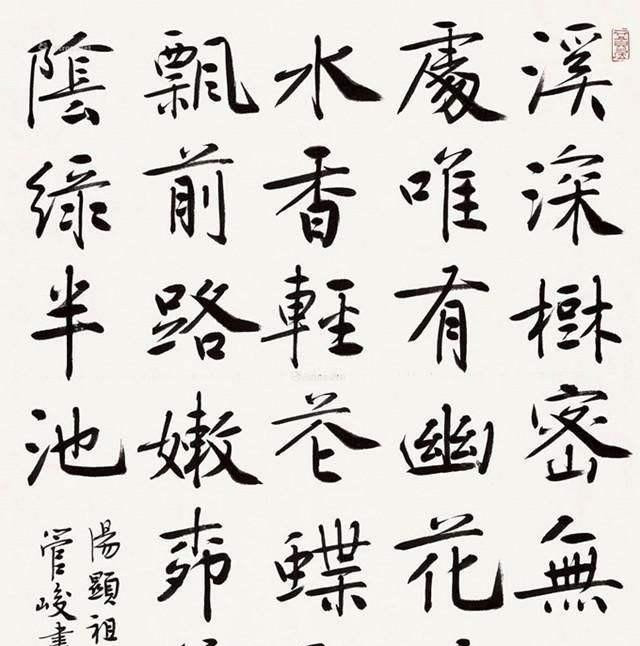 溪深樹密無
處唯有幽花
水香輕花蝶
飄前路嫩柳
陰綠半池
湯顯祖
管峻書